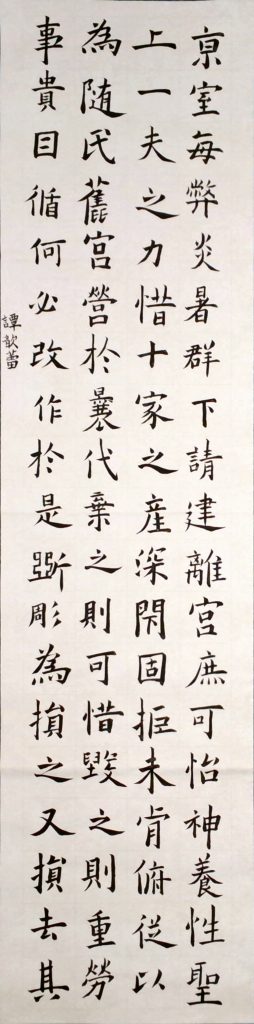 京室每弊炎暑群下請建離宮庶可怡神養性聖
上一夫之力惜十家之産深閇固拒未肯俯從以
為随氏舊宮營於曩代棄之則可惜毀之則重勞
事貴因循何必改作於是斵彫為損之又損去其
譚歆蕾